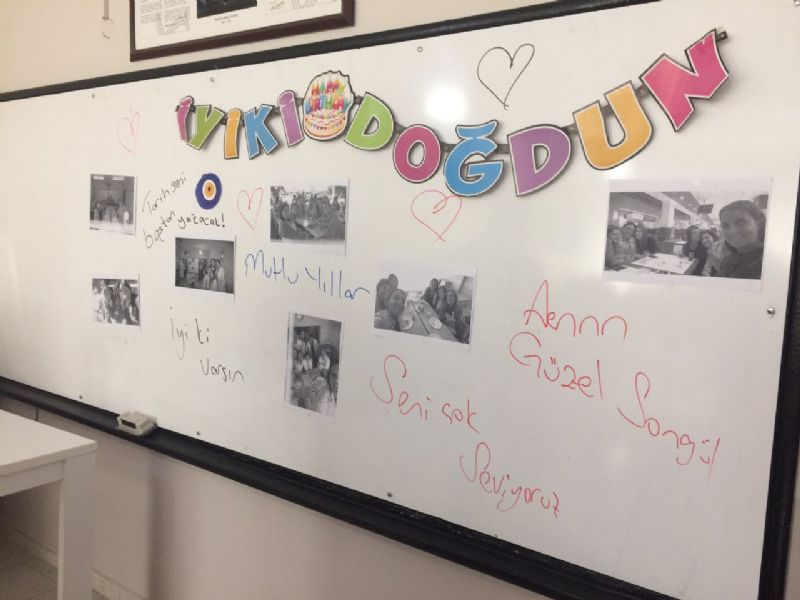 İYİKİ DOĞDUN
HAPPY
BIRTHDAY
Tarih seni
baştan yazacak!
Mutlu Yıllar
İyi ki
varsın
Seni çok
Seviyoruz
Güzel Songül